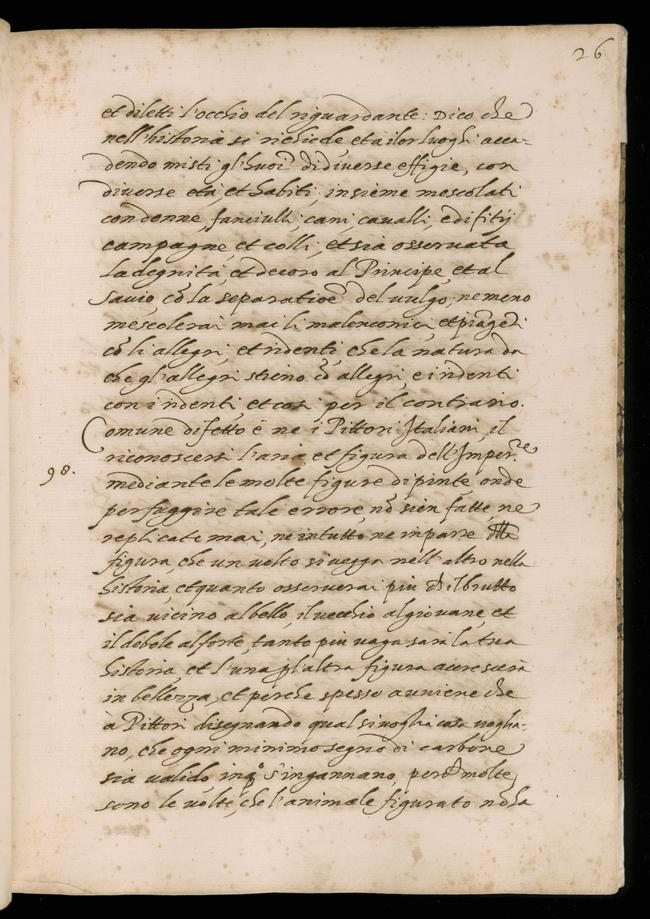 26
et diletti l'occhio del riguardante: Dico che
nell'historia si richiede, et a i lor luoghi acca-
dendo misti gl'huoi' di diverse effigie, con
diverse età, et habiti, insieme mescolati
con donne, fanciulli, cani, cavalli, edifitij
campagne, et colli, et sia osservata
la degnità, et decoro al Principe, et al
Savio, cō la separatioe' del vulgo, ne meno
mescolerai mai li malenconici, et piāgeti
cō li allegri, et ridenti che la natura da
che gl'allegri stieno cō allegri, e i ridenti
con i ridenti, et cosi per il contrario.
Comune difetto è ne i Pittori Italiani, il
riconoscersi l'aria et figura dell'Imper.re
98.
mediante le molte figure dipinte, onde
per fuggire tale errore, nō sien fatte, ne
replicate mai, ne in tutto ne in parte
figura, che un volto si vegga nell'altro nella
historia, et quanto osserverai più ch'il brutto
sia vicino al bello, il vecchio al giovane, et
il debole al forte, tanto più vaga sarà la tua
historia, et l'una p l'altra figura accrescerà
in bellezza, et perche spesso avviene che
a Pittori disegnando qual si voglia cosa voglia-
no, che ogni minimo segno di carbone
sia valido, in qº s'ingannano, perche molte
sono le volte, che l'animale figurato nō ha